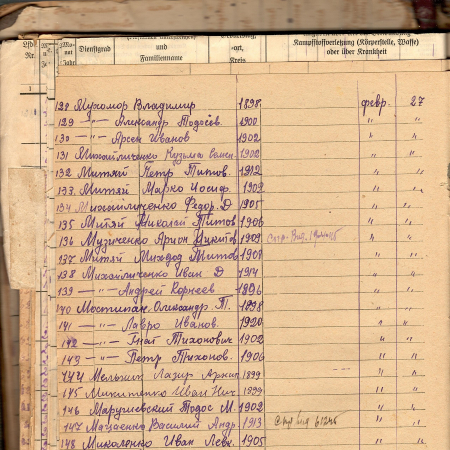 Lfde Nr.
Dienstgrad
und
Familienname
ort,
Kreis
Kampfstoffverletzung (Körperstelle, Waffe)
oder über Krankheit
128 Мухомор Владимир 1898 февр. 27
129 —"— Александр Тодосев. 1900 " "
130 —"— Арсен Иванов 1902 " "
131 Михайличенко Кузьма 1902 " "
132 Митяй Петр Титов. 1912 " "
133 Митяй Марко Иосиф. 1909 " "
134 Михайличенко Федор. Д 1905 " "
135 Митяй Николай Титов 1906 " "
136 Музиченко Ярион Никитов 1909 " "
137 Митяй Титов 1909 " "
138 Михайличенко Иван Д 1914 " "
139 —"— Андрей Корнеев 1896 " "
140 Мостипан Олександр Т. 1898 " "
141 —"— Лавро Иванов. 1920 " "
142 —"— Гнат Тихонович 1902 " "
143 —"— Петр Тихонов. 1906 " "
144 Мельник Лазир 1899 " "
145 Микитенко Иван Нич 1899 " "
146 Марушевский Тодос М. 1902 " "
147 Мацаенко Василий Андр. 1913 " "
148 Миколенко Иван Левк. 1905 " "